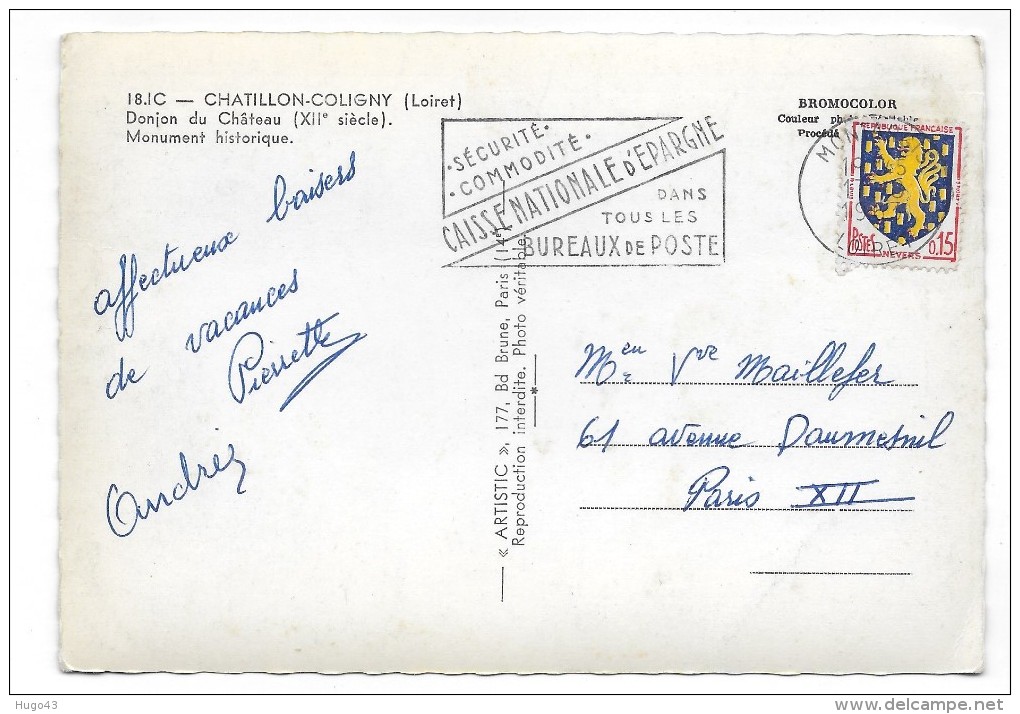 18.IC — CHATILLON-COLIGNY (Loiret)
Donjon du Château (XIIe siècle).
Monument historique.
affectueux baisers
de vacances
Pierrette
Andrée
· SÉCURITÉ ·
· COMMODITÉ ·
CAISSE NATIONALE D'EPARGNE
DANS
TOUS LES
BUREAUX DE POSTE
« ARTISTIC », 177, Bd Brune, Paris (14e)
Reproduction interdite. Photo véritable.
BROMOCOLOR
Couleur
Procédé
MON
LOIRET
REPUBLIQUE FRANÇAISE
POSTES
0,15
NEVERS
Vve Maillefer
61 avenue Daumesnil
Paris XII
Hugo43
www.delcampe.net